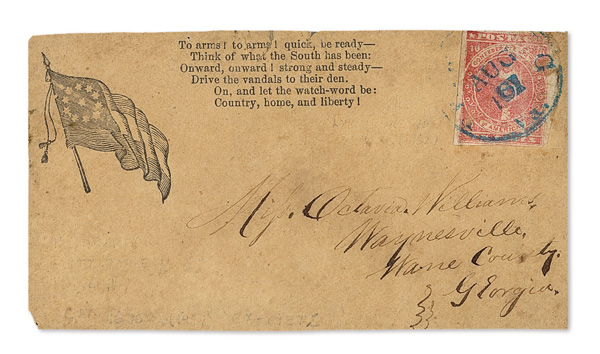 To arms! to arms! quick, be ready—
Think of what the South has been:
Onward, onward! strong and steady—
Drive the vandals to their den.
On, and let the watch-word be:
Country, home, and liberty!
AUG
VA
Miss. Octavia. Williams,
Waynesville,
Wane County.
Georgia.